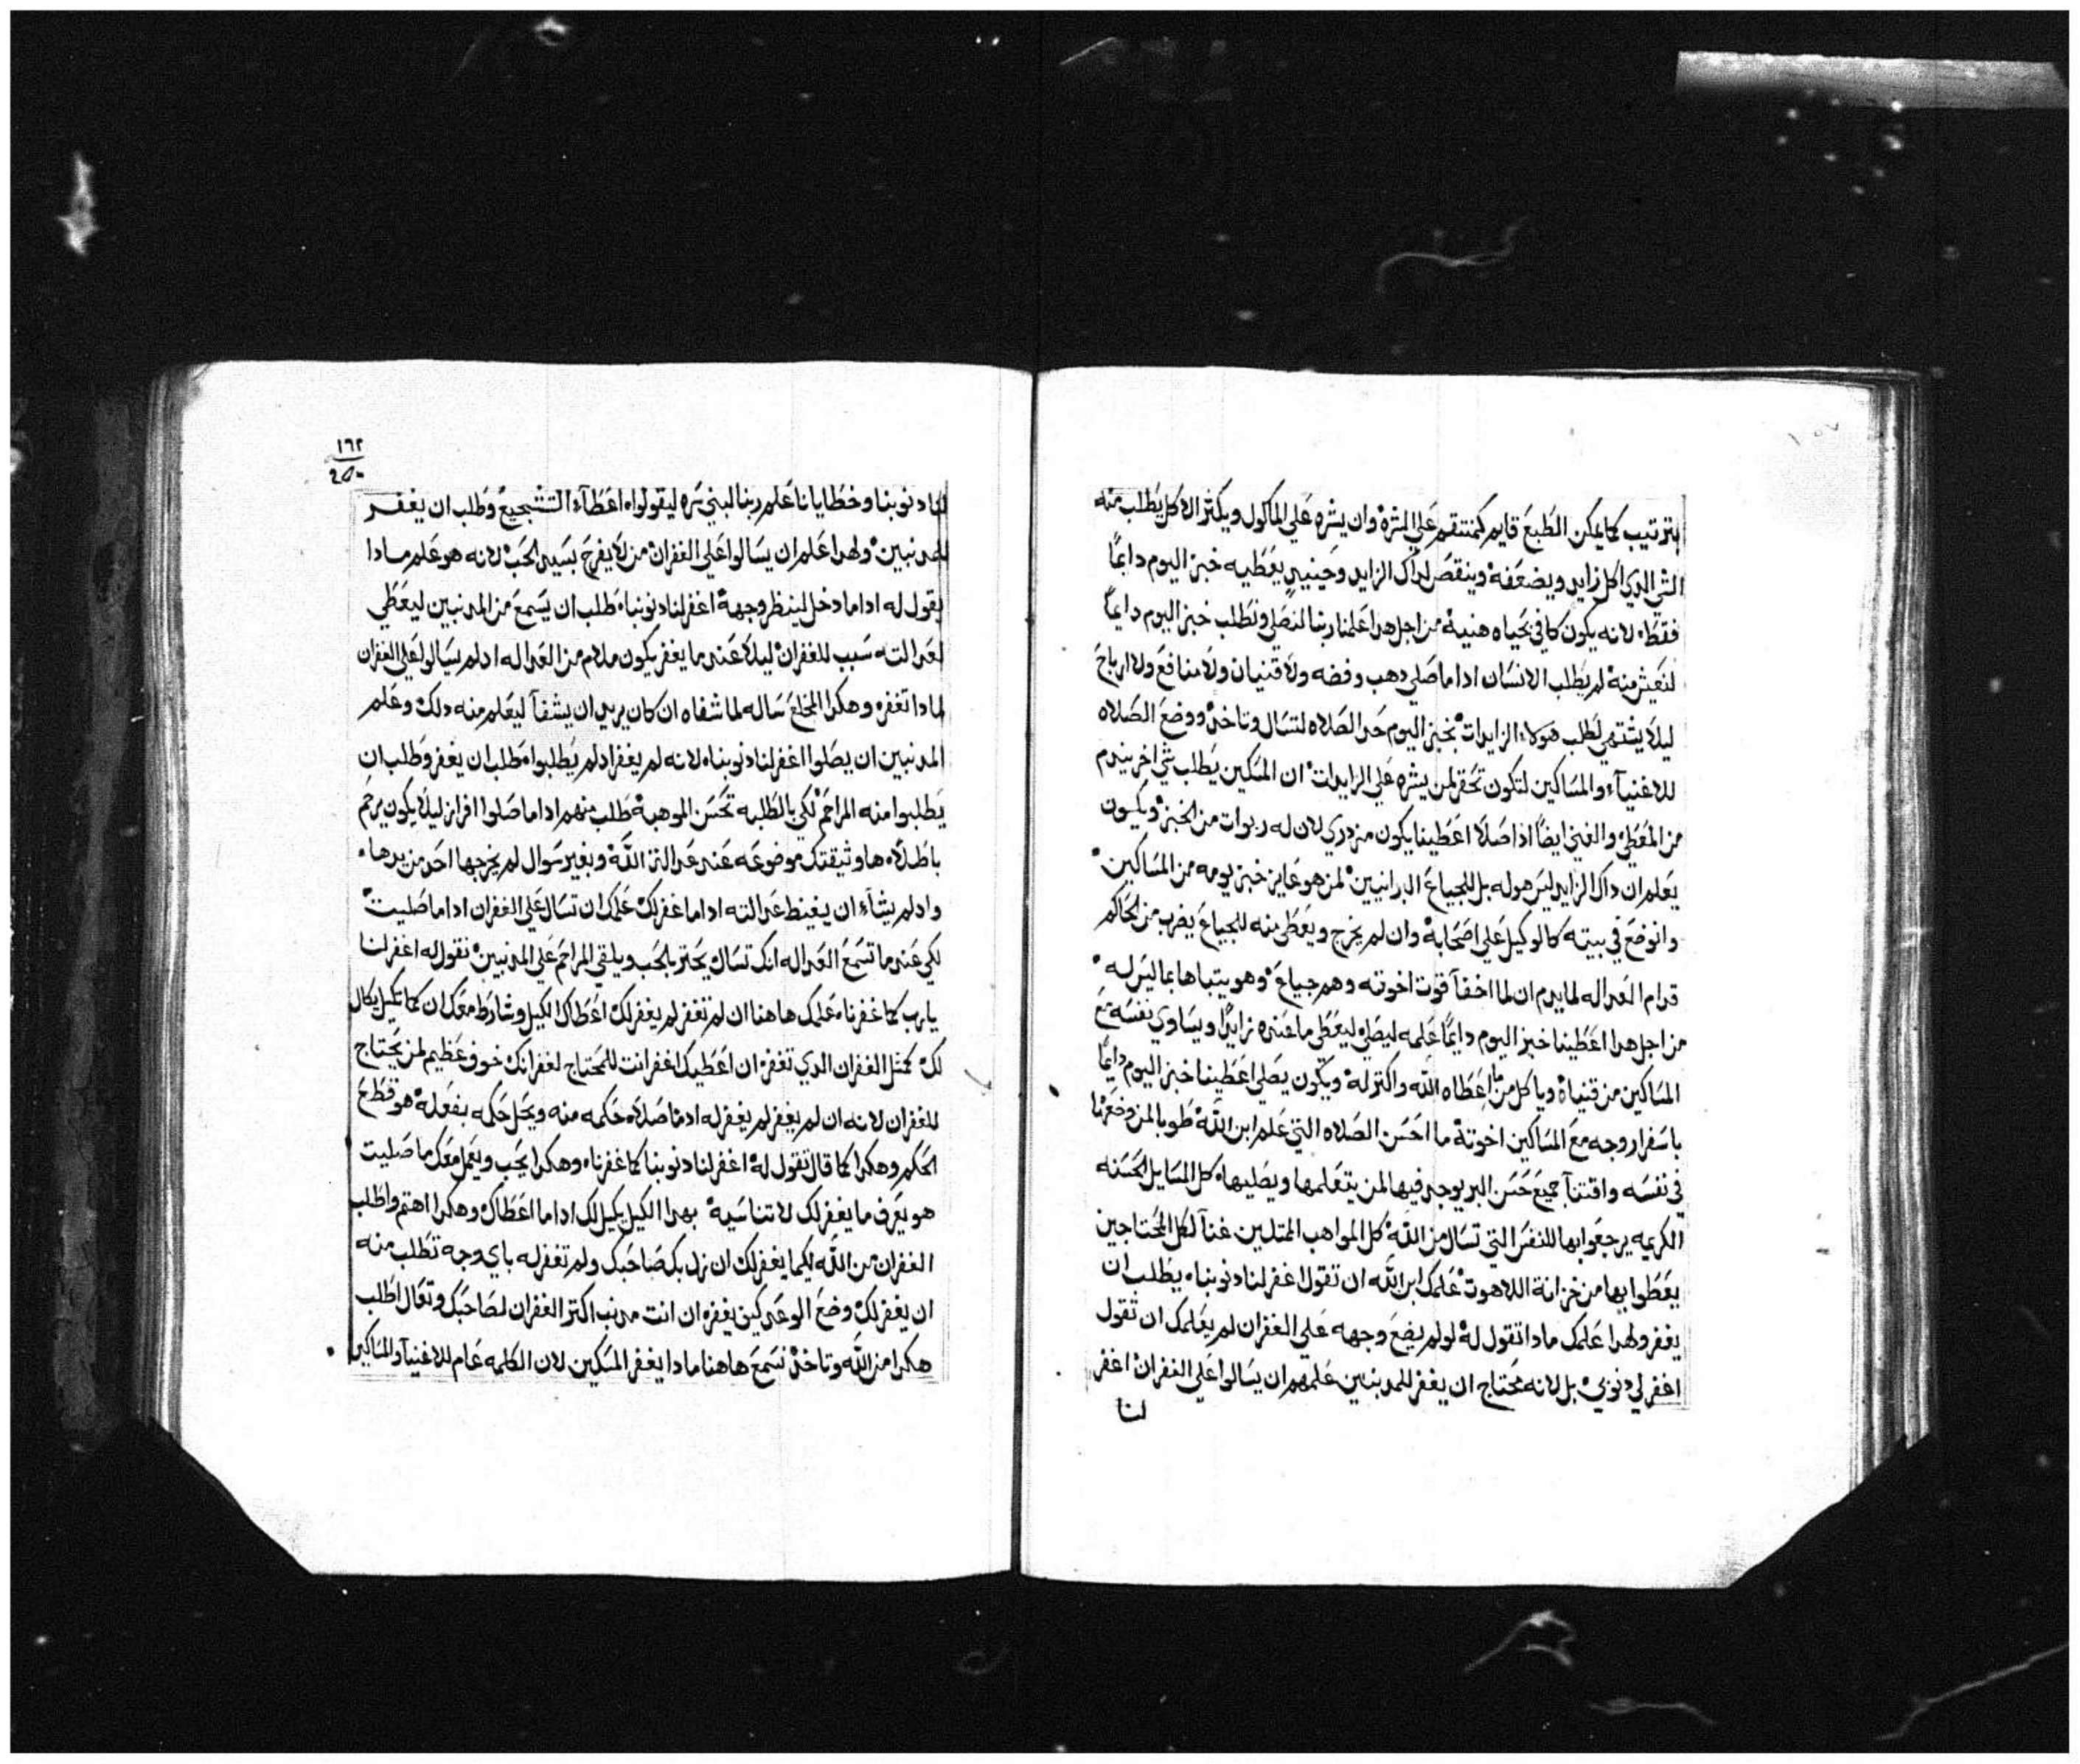 بترتيب كما يمكن الطبع قايم كمنتقم علي الشره وان يشره علي الماكول ويكتر الاكل يطلب منه
الشي الدي اكل زايد ويضعفه وينقص لداك الزايد وحينيدٍ يعطيه خبز اليوم دايماً
فقط لانه يكون كافي بحياه هنية من اجل هدا علمنا ربنا لنصلي ونطلب خبز اليوم دايماً
لنعيش منه لم يطلب الانسان ادا ما صلي دهب وفضه ولا قنيان ولا منافع ولا ارباح
ليلا يشتهي لطلب هولاء الزايدات بخبز اليوم حد الصلاه لتسال وتاخد ووضع الصلاه
للاغنيآء والمساكين لتكون تحقر لمن يشره علي الزايدات ان المسكين يطلب شي اخر يندم
من المعطي والغني ايضاً اذا صلا اعطينا يكون مزدري لان له ربوات من الخبز ويكون
يعلم ان داك الزايد ليس هو له بل للجياع البرانيين لمن هو عايز خبز يومه من المساكين
وانوضع في بيته كالوكيل علي اصحابه وان لم يخرج ويعطي منه للجياع يضرب من الحاكم
قدام العداله لما يدم ان لما اخفآ قوت اخوته وهم جياع وهو يتباها بما ليس له
من اجل هدا اعطينا خبز اليوم دايماً علمه ليصلي ليعطي ما عنده زايداً ويساوي نفسه مع
المساكين من قنياه وياكل من ما اعطاه الله واكتر له ويكون يصلي اعطينا خبز اليوم دايماً
باسفار وجه مع المساكين اخوته ما احسن الصلاه التي علم ابن الله طوبا لمن وضعها
في نفسه واقتنآ جميع حسن البر يوجد فيها لمن يتعلمها ويصليها كل المسايل الحسنه
الكريمه يرجعوا بها للنفس التي تسال من الله كل المواهب الممتلين غنآ لكل المحتاجين
يعطوا بها من خزانة اللاهوت علمك ابن الله ان تقول اغفر لنا دنوبنا يطلب ان
يغفر ولهدا علمك مادا تقول له لو لم يضع وجهه علي الغفران لم يعلمك ان تقول
اغفر لي دنوبي بل لانه محتاج ان يغفر للمدنبين علمهم ان يسالوا علي الغفران اغفر
لنا
١٦٢
لنا دنوبنا وخطايانا علم ربنا لبني ليقولوا اعطآء التشجيع وطلب ان يغفر
للمدنبين ولهدا علم ان يسالوا علي الغفران من لا يفرح بسيد الحب لانه هو علم مادا
يقول له ادا ما دخل لينظر وجهه اغفر لنا دنوبنا طلب ان يسمع من المدنبين ليعطي
لعدالته سبب للغفران ليلا عند ما يغفر يكون ملام من العداله اد لم يسالوا علي الغفران
لمادا تغفر وهكدا المخلع ساله لما شفاه ان كان يريد ان يشفآ ليعلم منه دلك وعلم
المدنبين ان يصلوا اغفر لنا دنوبنا لانه لم يغفر اد لم يطلبوا طلب ان يغفر وطلب ان
يطلبوا منه المراحم لكي بالطلبه تحسن الموهبه طلب منهم ادا ما صلوا افراز ليلا يكون يرحم
باطلاً ها وثيقتك موضوعه عند عدالة الله وبغير سوال لم يخرجها احد من يدها
واد لم يشآء ان يغيظ عدالته ادا ما غفر لك علمك ان تسال علي الغفران ادا ما صليت
لكي عند ما تسمع العداله انك تسال يحتد بالحب ويلقي المراحم علي المدنبين نقول له اغفر لنا
يا رب كما غفرنا علمك هاهنا ان لم تغفر لم يغفر لك اعطاك الكيل وشارط معك ان كما تكيل يكال
لك كمثل الغفران الدي تغفر ان اعطيك اغفر انت للمحتاج لغفرانك خوف عظيم لمن يحتاج
للغفران لانه ان لم يغفر لم يغفر له اد ما صلاه حكمه منه ويحل حكمه بفعله هو قطع
الحكم وهكدا كما قال تقول له اغفر لنا دنوبنا كما غفرنا وهكدا يجب ويعمل معك ما صليت
هو يعرف ما يغفر لك لا تناسيه بهدا الكيل يكيل لك ادا ما اعطاك وهكدا اهتم واطلب
الغفران من الله لكيما يغفر لك ان زل بك صاحبك ولم تغفر له باي وجه تطلب منه
ان يغفر لك وضع الوعد كيف يغفر ان انت مدنب اكتر الغفران لصاحبك وتعال اطلب
هكدا من الله وتاخد نسمع هاهنا مادا يغفر المسكين لان الكلمه عام للاغنيآ والمساكين